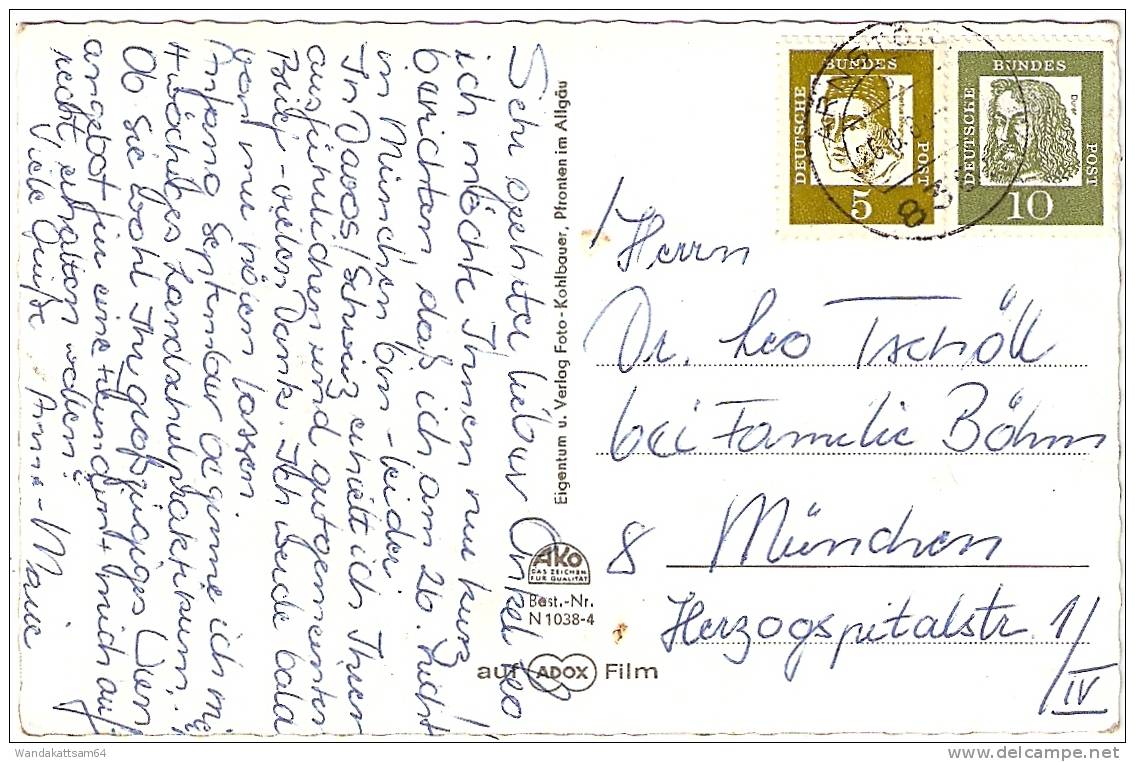 Sehr geehrter lieber Onkel Leo!
ich möchte Ihnen nur kurz
berichten, daß ich am 26. nicht
in München bin - leider.
In Davos / Schweiz erhielt ich Ihren
ausführlichen und gutgemeinten
Brief - vielen Dank. Ich werde bald
von mir hören lassen.
Anfang September beginne ich mein
Landschulpraktikum.
Ob Sie wohl Ihr großzügiges
angebot für eine mich auf-
recht erhalten wollen?
Viele Grüße Anne-Marie
Eigentum u. Verlag Foto-Kohlbauer, Pfronten im Allgäu
AKO
DAS ZEICHEN
FÜR QUALITÄT
Best.-Nr.
N 1038-4
auf ADOX Film
DEUTSCHE BUNDES POST
5
DEUTSCHE BUNDES POST
Dürer
10
Herrn
Dr. Leo Tschöll
bei Familie Böhm
8 München
Herzogspitalstr. 1/
IV
Wandakattsam64
delcampe.net